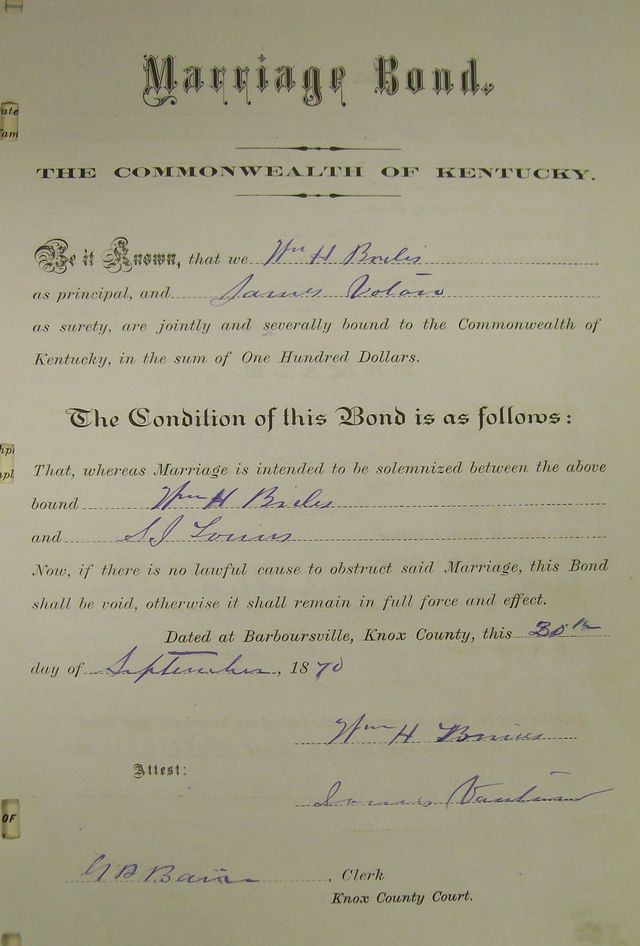 Marriage Bond.
THE COMMONWEALTH OF KENTUCKY.
Be it Known, that we Wm H
as principal, and James
as surety, are jointly and severally bound to the Commonwealth of
Kentucky, in the sum of One Hundred Dollars.
The Condition of this Bond is as follows:
That, whereas Marriage is intended to be solemnized between the above
bound Wm H
and S J
Now, if there is no lawful cause to obstruct said Marriage, this Bond
shall be void, otherwise it shall remain in full force and effect.
Dated at Barboursville, Knox County, this 30th
day of September, 1870
Wm H
Attest:
James
, Clerk
Knox County Court.
OF